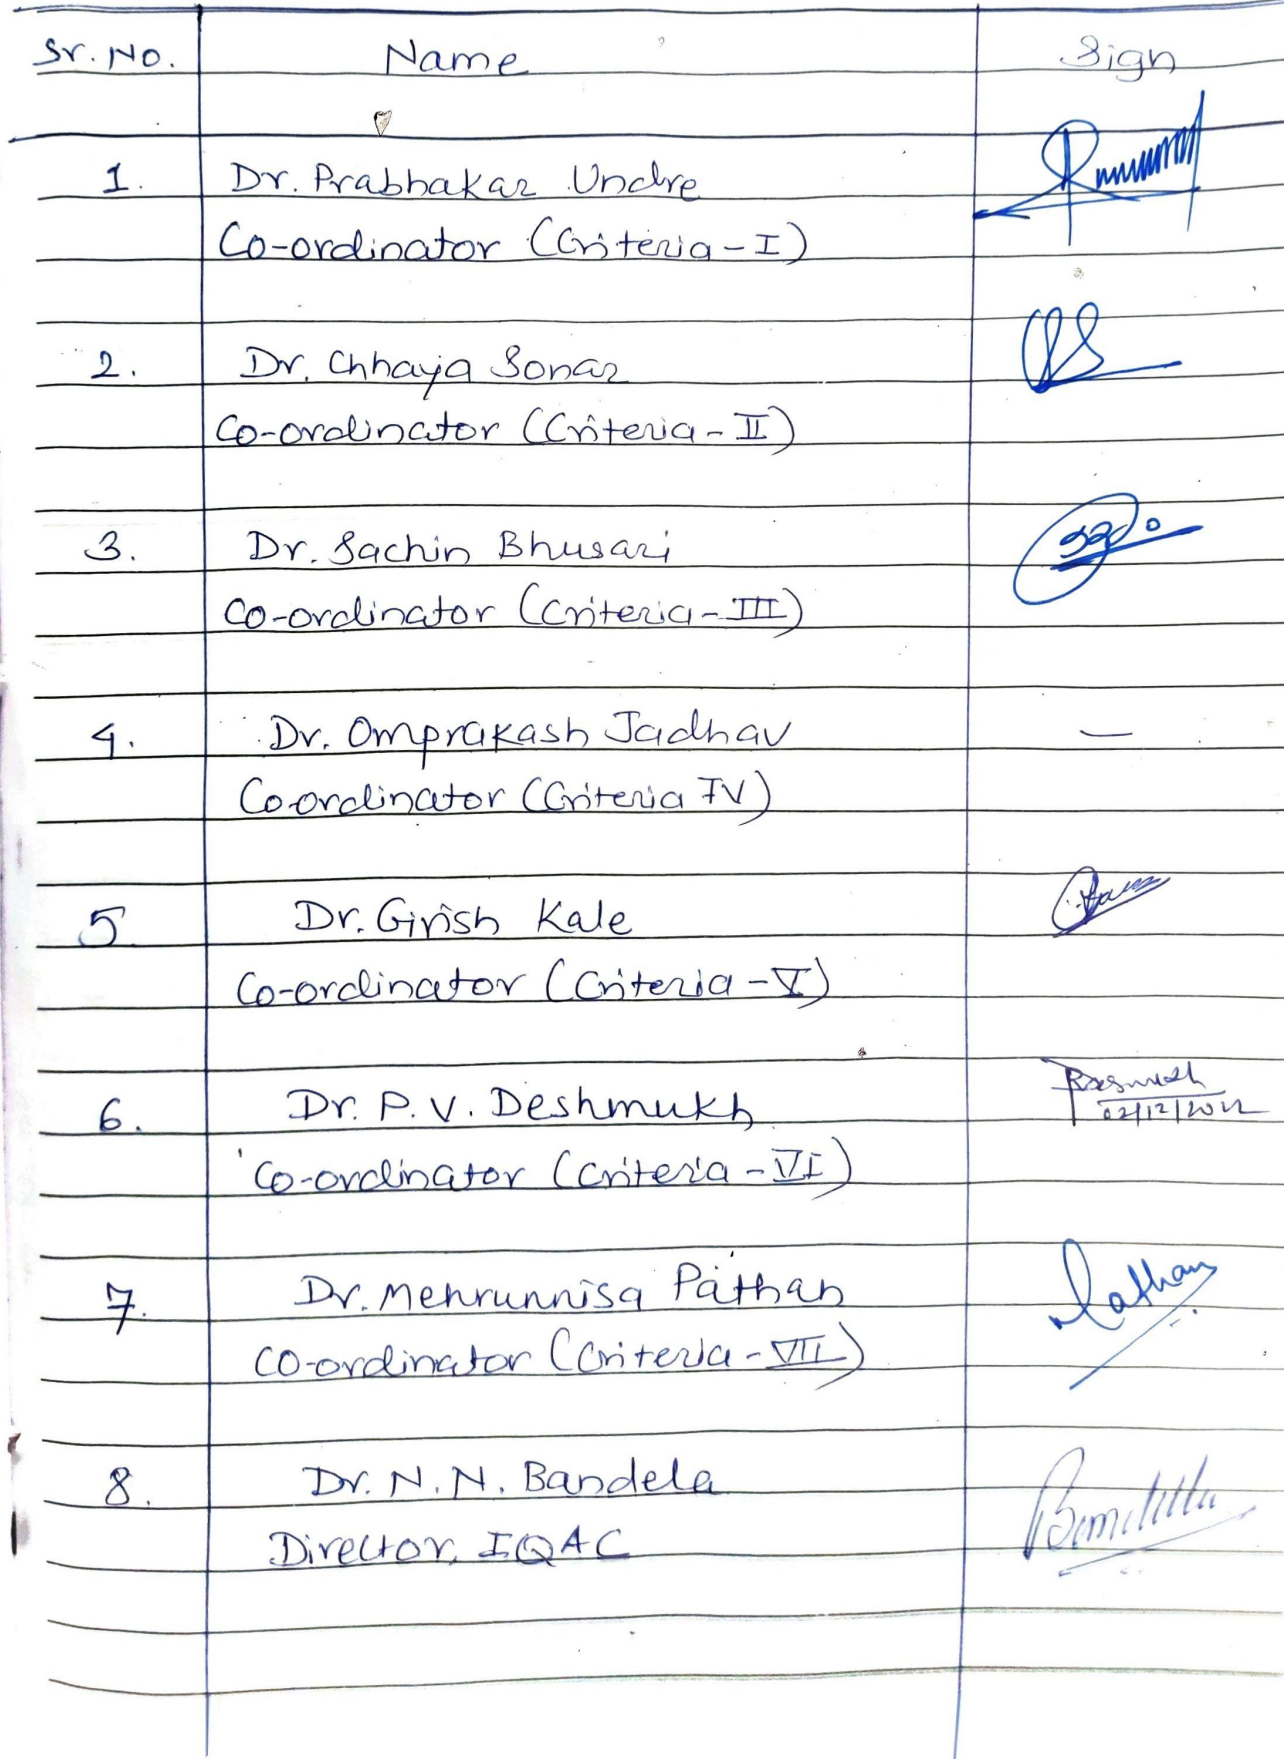 Sr. No. Name Sign
1. Dr. Prabhakar Undre
Co-ordinator (Criteria - I)
2. Dr. Chhaya Sonar
Co-ordinator (Criteria - II)
3. Dr. Sachin Bhusari
Co-ordinator (Criteria - III)
4. Dr. Omprakash Jadhav —
Co-ordinator (Criteria IV)
5 Dr. Girish Kale
Co-ordinator (Criteria - V)
6. Dr. P. V. Deshmukh
02/12/2022
Co-ordinator (Criteria - VI)
7. Dr. Mehrunnisa Pathan Pathan
Co-ordinator (Criteria - VII)
8. Dr. N. N. Bandela
Director, IQAC